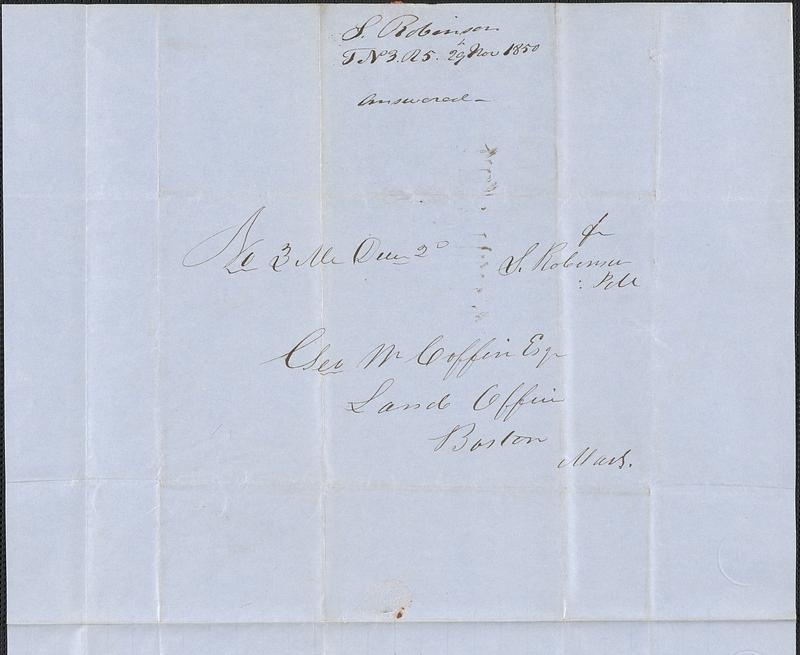 S. Robinson
T No 3. R 5. 29th Nov 1850
Answered
No 3 Me Dec 2d
fr
S. Robinson
P.M
Geo W Coffin Esqr
Land Office
Boston
Mass.